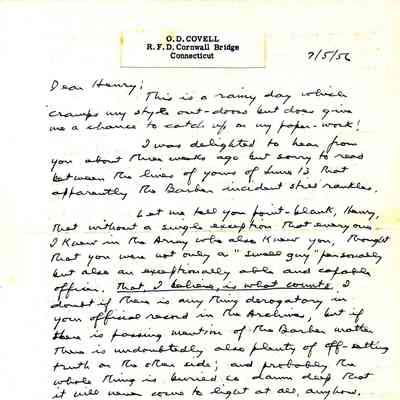 O.D. COVELL
R.F.D. Cornwall Bridge
Connecticut
7/5/56
Dear Henry;
This is a rainy day which
cramps my style out-doors but does give
me a chance to catch up on my paper-work!
I was delighted to hear from
you about three weeks ago but sorry to read
between the lines of yours of June 13 that
apparently the Barber incident still rankles.
Let me tell you point-blank, Henry,
that without a single exception that everyone
I knew in the Army who also knew you, thought
that you were not only a "swell guy" personally
but also an exceptionally able and capable
officer. That, I believe, is what counts. I
doubt if there is any thing derogatory in
your official record in the Archives, but if
there is passing mention of the Barber matter
there is undoubtedly also plenty of off-setting
truth on the other side; and probably the
whole thing is buried so damn deep that
it will never come to light at all, anyhow.